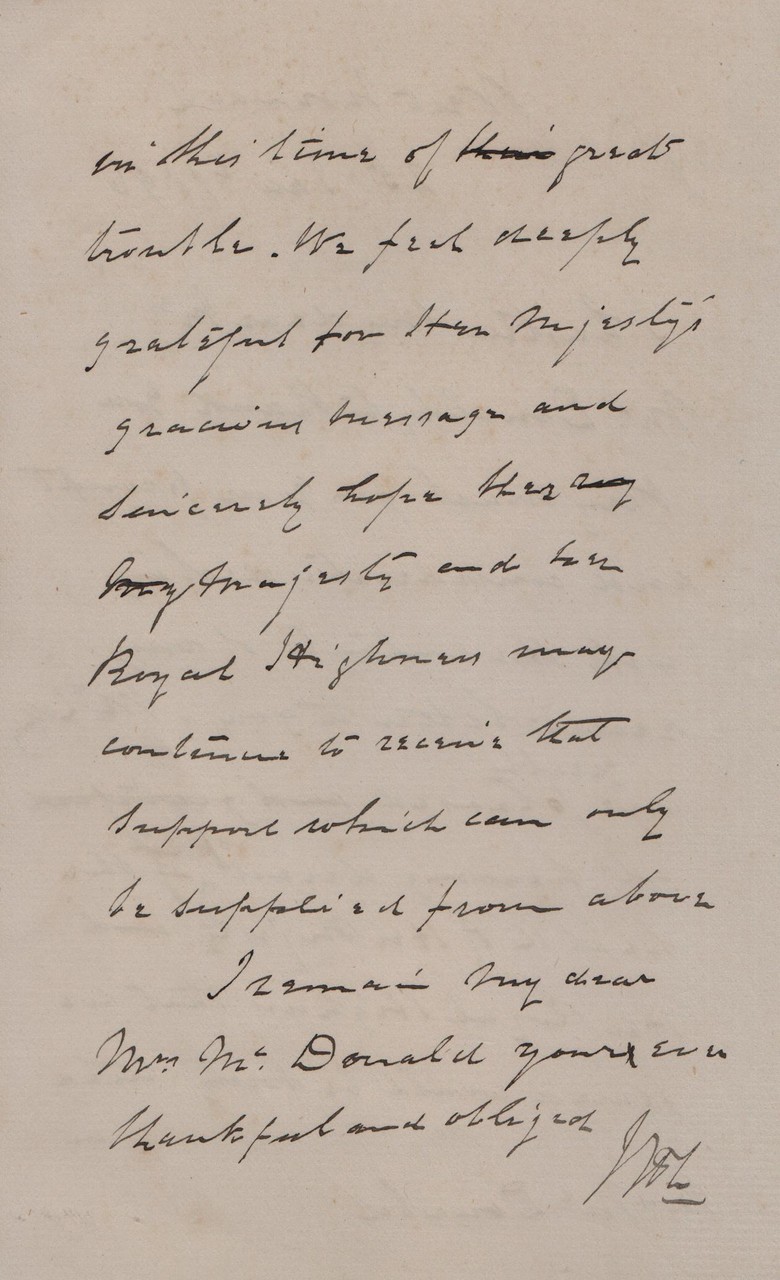 in this time of their great
trouble. We feel deeply
grateful for Her Mjesty's
gracious message and
sincerely hope
Majesty and her
Royal Highness may
continue to receive that
support which can only
be supplied from above
I remain my dear
Mrs Mc. Donald yours ever
thankful and obliged